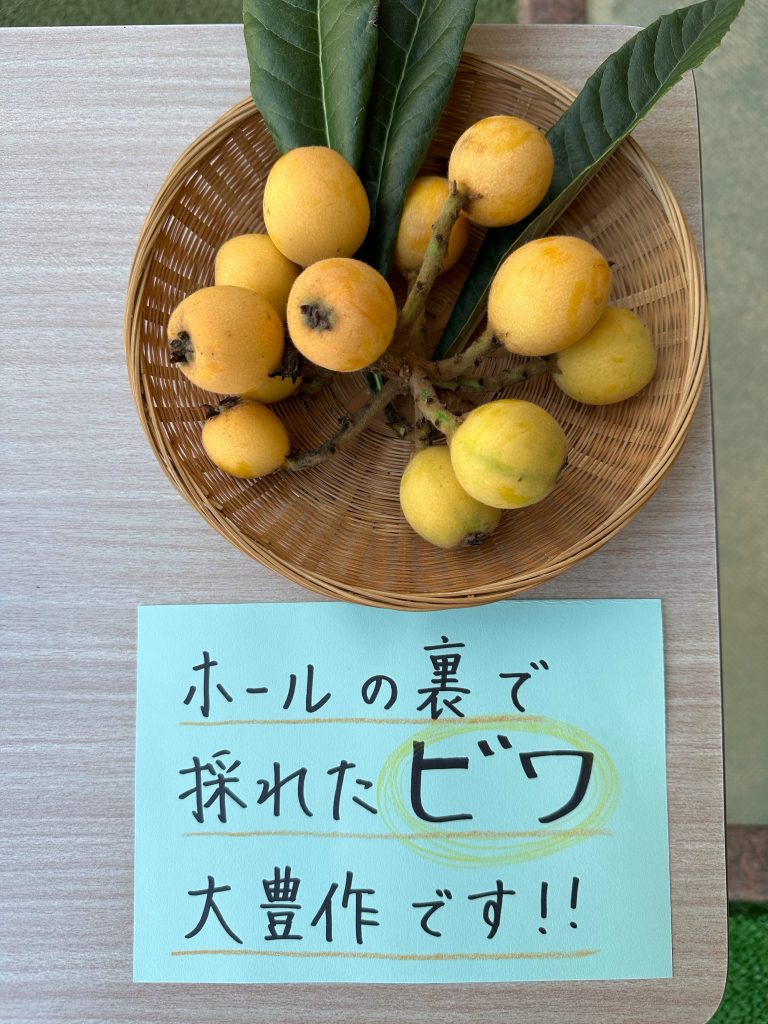 ホールの裏で
採れたビワ
大豊作です!!